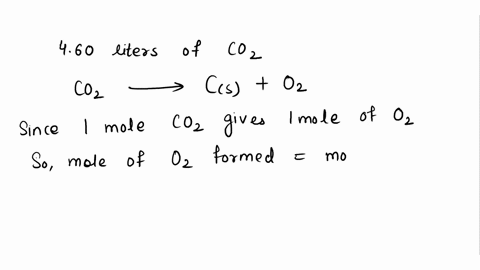 4.60 liters of CO₂
CO₂ ⟶ C(s) + O₂
Since 1 mole CO₂ gives 1 mole of O₂
So, mole of O₂ formed = mo